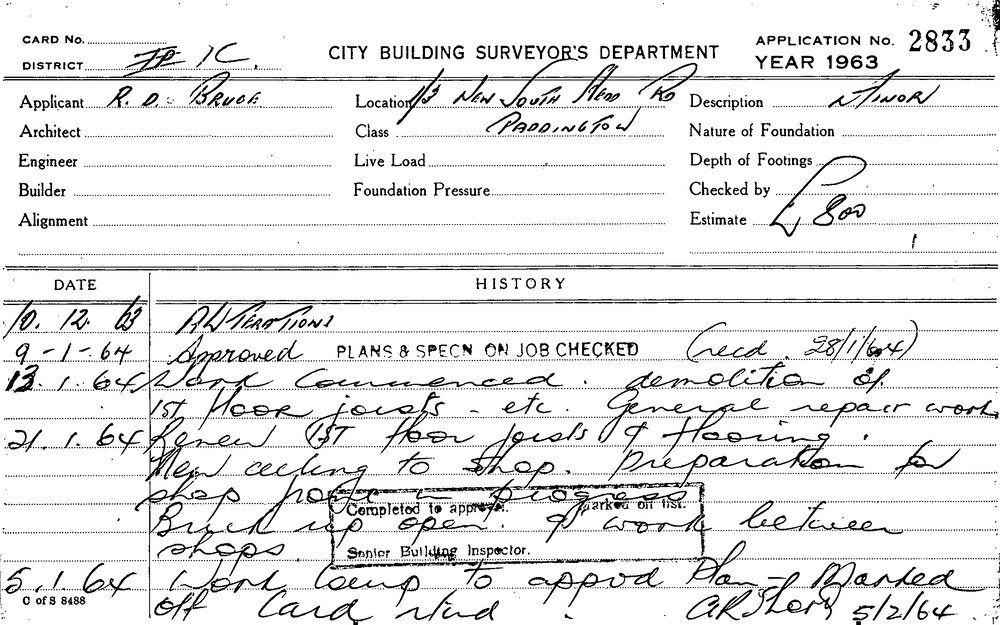 CARD No.
DISTRICT 1C.
CITY BUILDING SURVEYOR'S DEPARTMENT
APPLICATION No. 2833
YEAR 1963
Applicant R. D. BRUCE
Location 1/3 NEW SOUTH HEAD RD
Description MINOR
Architect
Class PADDINGTON
Nature of Foundation
Engineer
Live Load
Depth of Footings
Builder
Foundation Pressure
Checked by
Alignment
Estimate £ 800
DATE
HISTORY
10. 12. 63 ALTERATIONS
9-1-64 Approved PLANS & SPECN ON JOB CHECKED (recd. 28/1/64)
13.1.64 Work Commenced. demolition of
1ST floor joists - etc. General repair work
21.1.64 Renew 1ST floor joists & flooring.
New ceiling to shop. Preparation for
shop front in progress
Brick up open. & work between
shops.
Completed to approv. marked on list.
Senior Building Inspector.
5.1.64 Work comp to appvd Plan - Marked
off Card rtnd. 5/2/64
C of S 8488